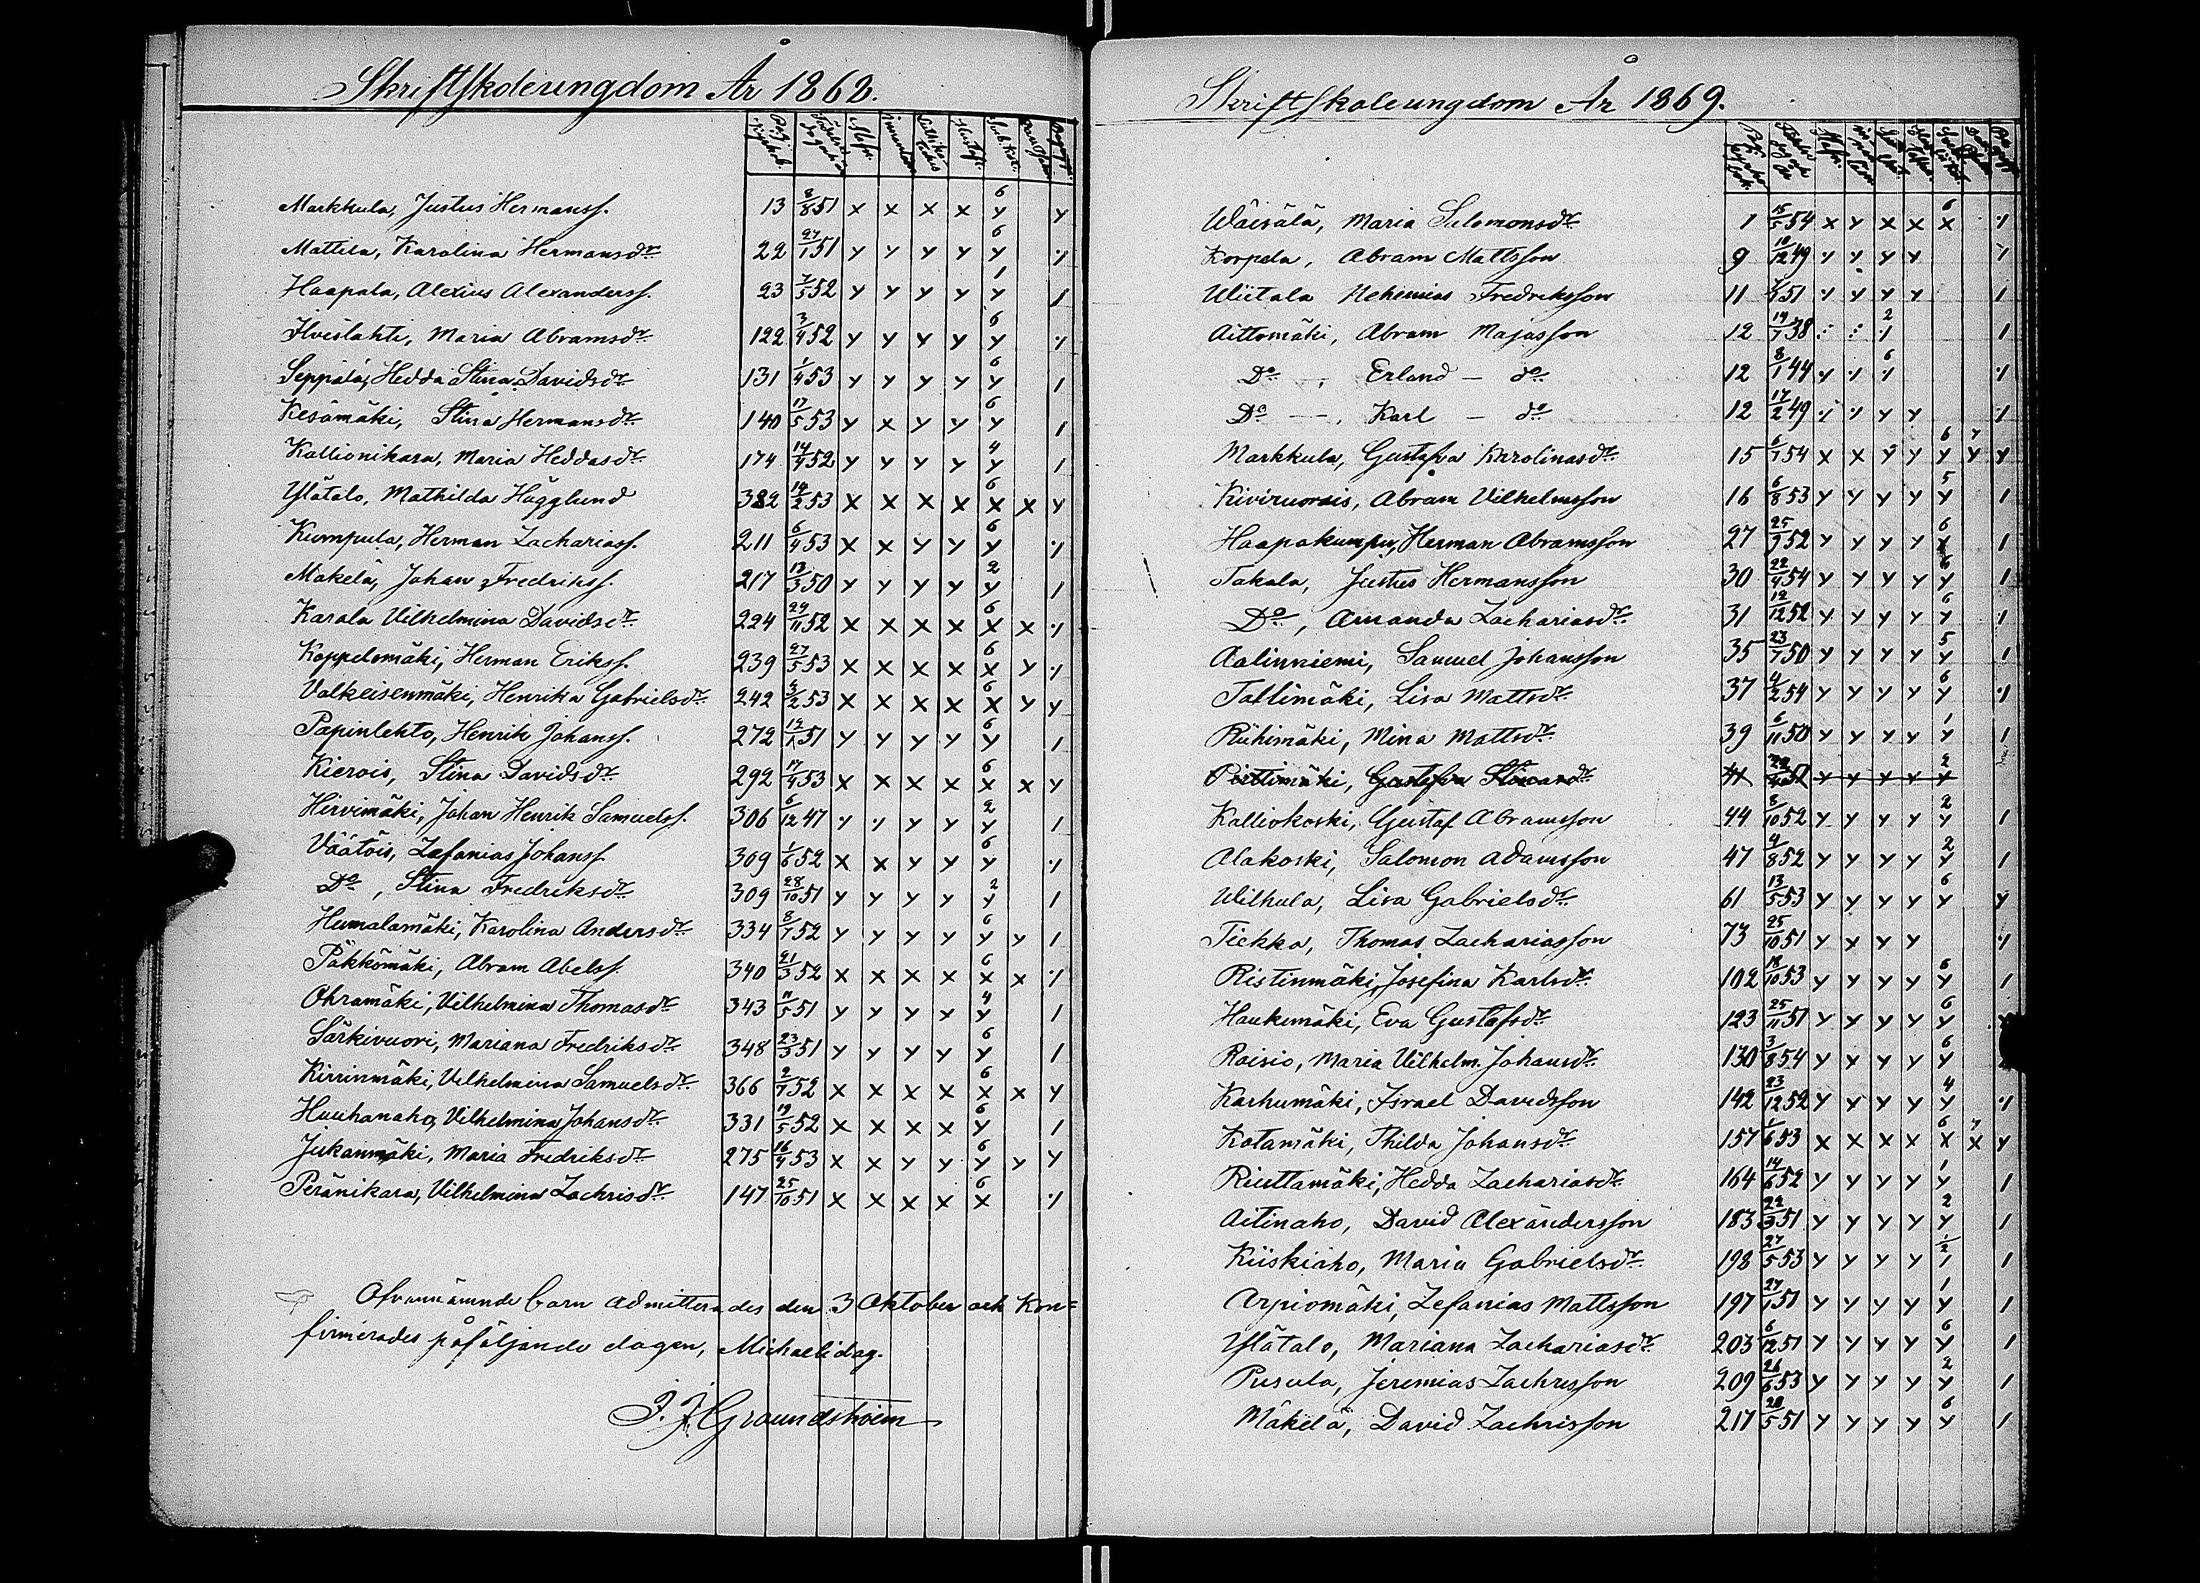 Skriftskoleungdom År 1868.
Markkula, Justus Hermanss. 13 8/8 51 x x x x 6 y y
Mattila, Karolina Hermansdr. 22 27/1 51 y y y y 6 y ·/.
Haapala, Alexius Alexanderss. 23 7/5 52 y y y y 1 y 1
Ilveslahti, Maria Abramsdr. 122 3/4 52 y y y y 6 y ·/.
Seppälä, Hedda Stina Davidsdr. 131 1/4 53 y y y y 6 y 1
Kesämäki, Stina Hermansdr. 140 17/5 53 y x y y 6 y 1
Kallionikara, Maria Heddasdr. 174 14/4 52 y y y y 4 y 1
Ylätalo, Mathilda Hägglund 382 14/2 53 x x x x 6 x x y
Kumpula, Herman Zachariass. 211 6/4 53 x x y y 6 y ·/.
Mäkelä, Johan Fredrikss. 217 13/3 50 y y y y 2 y 1
Karala Vilhelmina Davidsdr. 224 24/11 52 x x x x 6 x x ·/.
Koppelomäki, Herman Erikss. 239 27/5 53 x x x x 6 x y ·/.
Valkeisenmäki, Henrika Gabrielsdr. 242 4/2 53 x x x x 6 x y y
Papinlehto, Henrik Johanss. 272 14/1 51 y y y y 6 y 1
Kierois, Stina Davidsdr. 292 17/4 53 x x x x 6 x x y
Hirvimäki, Johan Henrik Samuelss. 306 6/12 47 y y y y 2 y 1
Väätöis, Zefanias Johanss. 309 1/6 52 x x y y 6 y ·/.
Do, Stina Fredriksdr. 309 28/10 51 y y y y 2 y 1
Humalamäki, Karolina Andersdr. 334 8/7 52 y y y y 6 y y 1
Päkkömäki, Abram Abelss. 340 21/3 52 x x x x 6 x x ·/.
Ohramäki, Vilhelmina Thomasdr. 343 11/5 51 y y y y 4 y 1
Särkivuori, Mariana Fredriksdr. 348 23/3 51 y y y y 6 y 1
Kirrinmäki, Vilhelmina Samuelsdr. 366 2/7 52 x x x x 6 x x y
Huuhanaho, Vilhelmina Johansdr. 331 19/5 52 x x x x 6 y 1
Jukanmäki, Maria Fredriksdr. 275 16/4 53 x x y y 6 y y y
Peränikara, Vilhelmina Zachrisdr. 147 25/10 51 x x x x 6 x ·/.
Ofvannämnde barn admitterades den 3 Oktober och Kon=
firmerades påföljande dagen, Michaelidag.
Skriftskoleungdom År 1869.
Wäisälä, Maria Salomonsdr. 1 15/5 54 x y x x 6 x ·/.
Korpela, Abram Mattsson 9 10/12 49 y y y y 1
Uiitala Nehemias Fredriksson 11 51 y y y y 1
Aittomäki, Abram Majasson 12 19/7 38 2 1
Do — Erland — do 12 8/1 44 6 ·/.
Do — Karl — do 12 17/2 49 y y ·/.
Markkula, Gustafva Karolinasdr. 15 6/7 54 x x y y 6 y y y
Kiviruorsis, Abram Vilhelmsson 16 6/8 53 y y y y 5 y 1
Haapakumpu, Herman Abramsson 27 25/9 52 y y y y 6 x 1
Takala, Justus Hermansson 30 22/4 54 y y y y 6 y 1
Do, Amanda Zachariasdr. 31 12/12 52 y y y y 6 y ·/.
Aalinniemi, Samuel Johansson 35 23/7 50 y y y y 5 y 1
Tallimäki, Lisa Mattsdr. 37 4/2 54 y y y y 6 y ·/.
Riihimäki, Mina Mattsdr. 39 6/11 50 y y y y 1 y 1
Piittimäki, Gustafva
Kalliokoski, Gustaf Abramsson 44 8/10 52 y y y y 2 y 1
Alakoski, Salomon Adamsson 47 4/8 52 y y y y 2 y 1
Wilhula, Lisa Gabrielsdr. 61 13/5 53 y y y y 6 y y
Tiekka, Thomas Zachariasson 73 25/10 51 y x y y ·/.
Ristinmäki, Josefina Karlsdr. 102 18/10 53 y y y y 6 y 1
Haukimäki, Eva Gustafsdr. 123 25/11 51 y x y y 6 y
Roisio, Maria Vilhelm. Johansdr. 130 3/8 54 y x y y 6 y
Karhumäki, Israel Davidsson 142 23/12 52 y x y y 4 y ·/.
Katamäki, Thilda Johansdr. 157 1/6 53 x x x x 6 x x y
Riuttamäki, Hedda Zachariasdr. 164 14/6 52 y y y y 1 y 1
Aitinaho, David Alexandersson 183 22/3 51 y y y y 2 y 1
Kiiskiaho, Maria Gabrielsdr. 198 27/5 53 y y y y 1/2 1 1
Arpiomäki, Zefanias Mattsson 197 27/1 51 y y y y 1 y 1
Ylätalo, Mariana Zachariasdr. 203 6/12 51 y y y y 6 y 1
Pusula, Jeremias Zachrisson 209 26/6 53 y y y y 2 y 1
Mäkelä, David Zachrisson 217 28/5 51 y y y y 6 y 1